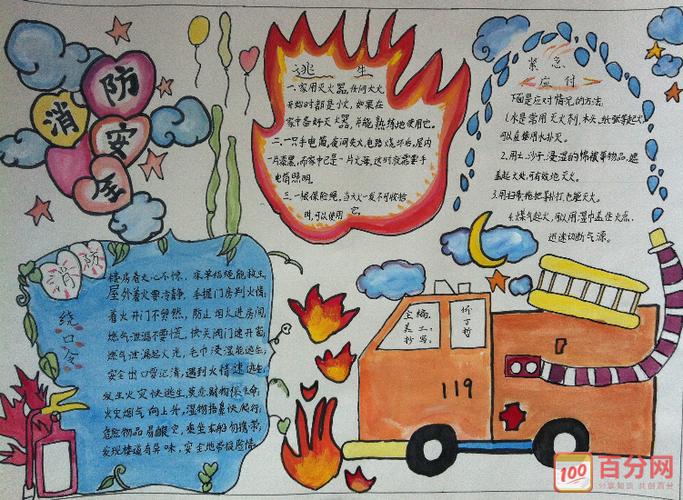 消防安全
逃生
一、家用灭火器,任何大火
开始时都是小火,如果在
家中备好灭火器,并能熟练地使用它。
二、一只手电筒,夜间失火,电路烧坏后,屋内
一片漆黑,而家中已是一片火海,这时就需要手
电筒照明。
三、一根保险绳,当大火一发不可收拾
时,可以使用它。
紧急
应付
下面是应对情况的方法:
1.水是常用灭火剂,木头、纸张等起火,
可以直接用水扑灭。
2.用土、沙子、浸湿的棉被等物品,遮
盖起火处,可有效地灭火。
3.用扫帚、拖把等扑打,也能灭火。
4.煤气起火,可以用湿巾盖住火点,
迅速切断气源。
消防
绕口令
楼房着火心不惊,床单结绳能救生
屋外着火要冷静,手摸门房判火情
着火开门不贸然,防止烟火进房间
燃气泄漏不要慌,快关阀门速开窗
燃气泄漏起火光,毛巾浸湿能遮盖
安全出口要记清,遇到火情速逃生
发生火灾快逃生,莫恋财物保生命
火灾烟气向上升,湿物捂鼻快爬行
危险物品易酿灾,乘坐车船勿携带
发现楼道有异味,安全地带报险情
主编:
美工:
抄写:
119
100
百分网